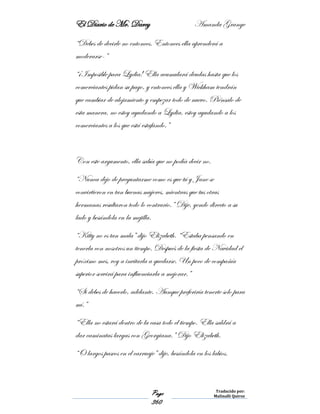 El Diario de Mr. Darcy Amanda Grange
“Debes de decirle no entonces. Entonces ella aprenderá a
moderarse.”
“¡Imposible para Lydia! Ella acumulará deudas hasta que los
comerciantes pidan su pago, y entonces ella y Wickham tendrán
que cambiar de alojamiento y empezar todo de nuevo. Piénsalo de
esta manera, no estoy ayudando a Lydia, estoy ayudando a los
comerciantes a los que está estafando.”
Con este argumento, ella sabía que no podía decir no.
“Nunca dejo de preguntarme como es que tú y Jane se
convirtieron en tan buenas mujeres, mientras que tus otras
hermanas resultaron todo lo contrario.” Dije, yendo directo a su
lado y besándola en la mejilla.
“Kitty no es tan mala” dijo Elizabeth. “Estaba pensando en
tenerla con nosotros un tiempo. Después de la fiesta de Navidad el
próximo mes, voy a invitarla a quedarse. Un poco de compañía
superior servirá para influenciarla a mejorar.”
“Si debes de hacerlo, adelante. Aunque preferiría tenerte solo para
mí.”
“Ella no estará dentro de la casa todo el tiempo. Ella saldrá a
dar caminatas largas con Georgiana.” Dijo Elizabeth.
“O largos paseos en el carruaje” dije, besándola en los labios.
Page
360
Traducido por:
Malinalli Quiroz